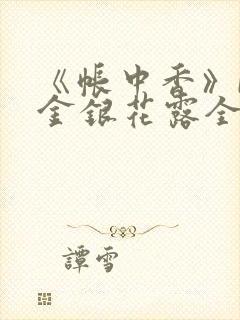 《帳中香》
金銀花露全
譚雪